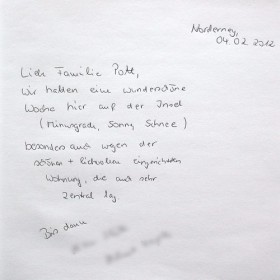 Norderney,
04.02.2012
Liebe Familie Pott,
wir hatten eine wunderschöne
Woche hier auf der Insel
(Minusgrade, Sonne, Schnee)
besonders auch wegen der
schönen + liebevollen eingerichteten
Wohnung, die auch sehr
zentral lag
Bis dann